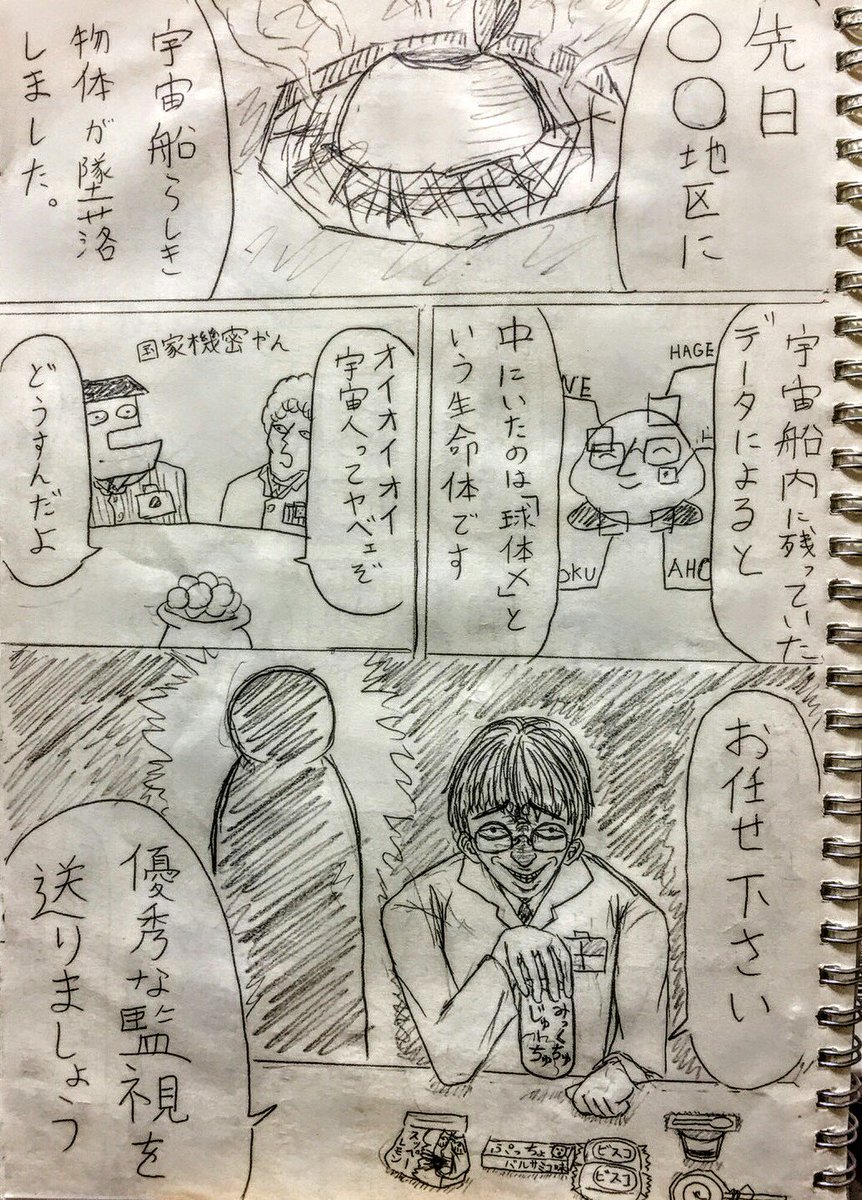 先日
○○地区に
宇宙船らしき
物体が墜落
しました。
宇宙船内に残っていた
データによると
HAGE
VE
OKU
AHO
中にいたのは「球体X」と
いう生命体です
オイオイオイ
宇宙人ってヤベェぞ
国家機密やん
どうすんだよ
お任せ下さい
みっくちゅ
じゅーちゅ
優秀な監視を
送りましょう
スッペー
レモン
ぷっちょ
バルサミコ味
ビスコ
ビスコ